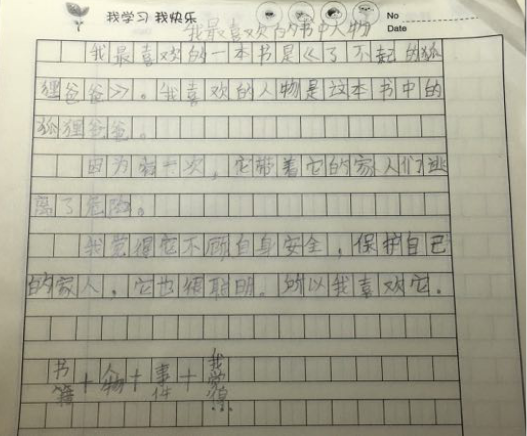 我学习 我快乐
No
Date
我最喜欢的书中人物
我最喜欢的一本书是《了不起的狐
狸爸爸》。我喜欢的人物是这本书中的
狐狸爸爸。
因为有一次，它带着它的家人们逃
离了危险。
我觉得它不顾自身安全，保护自己
的家人，它也很聪明。所以我喜欢它。
书籍+人物+事件+我觉得……